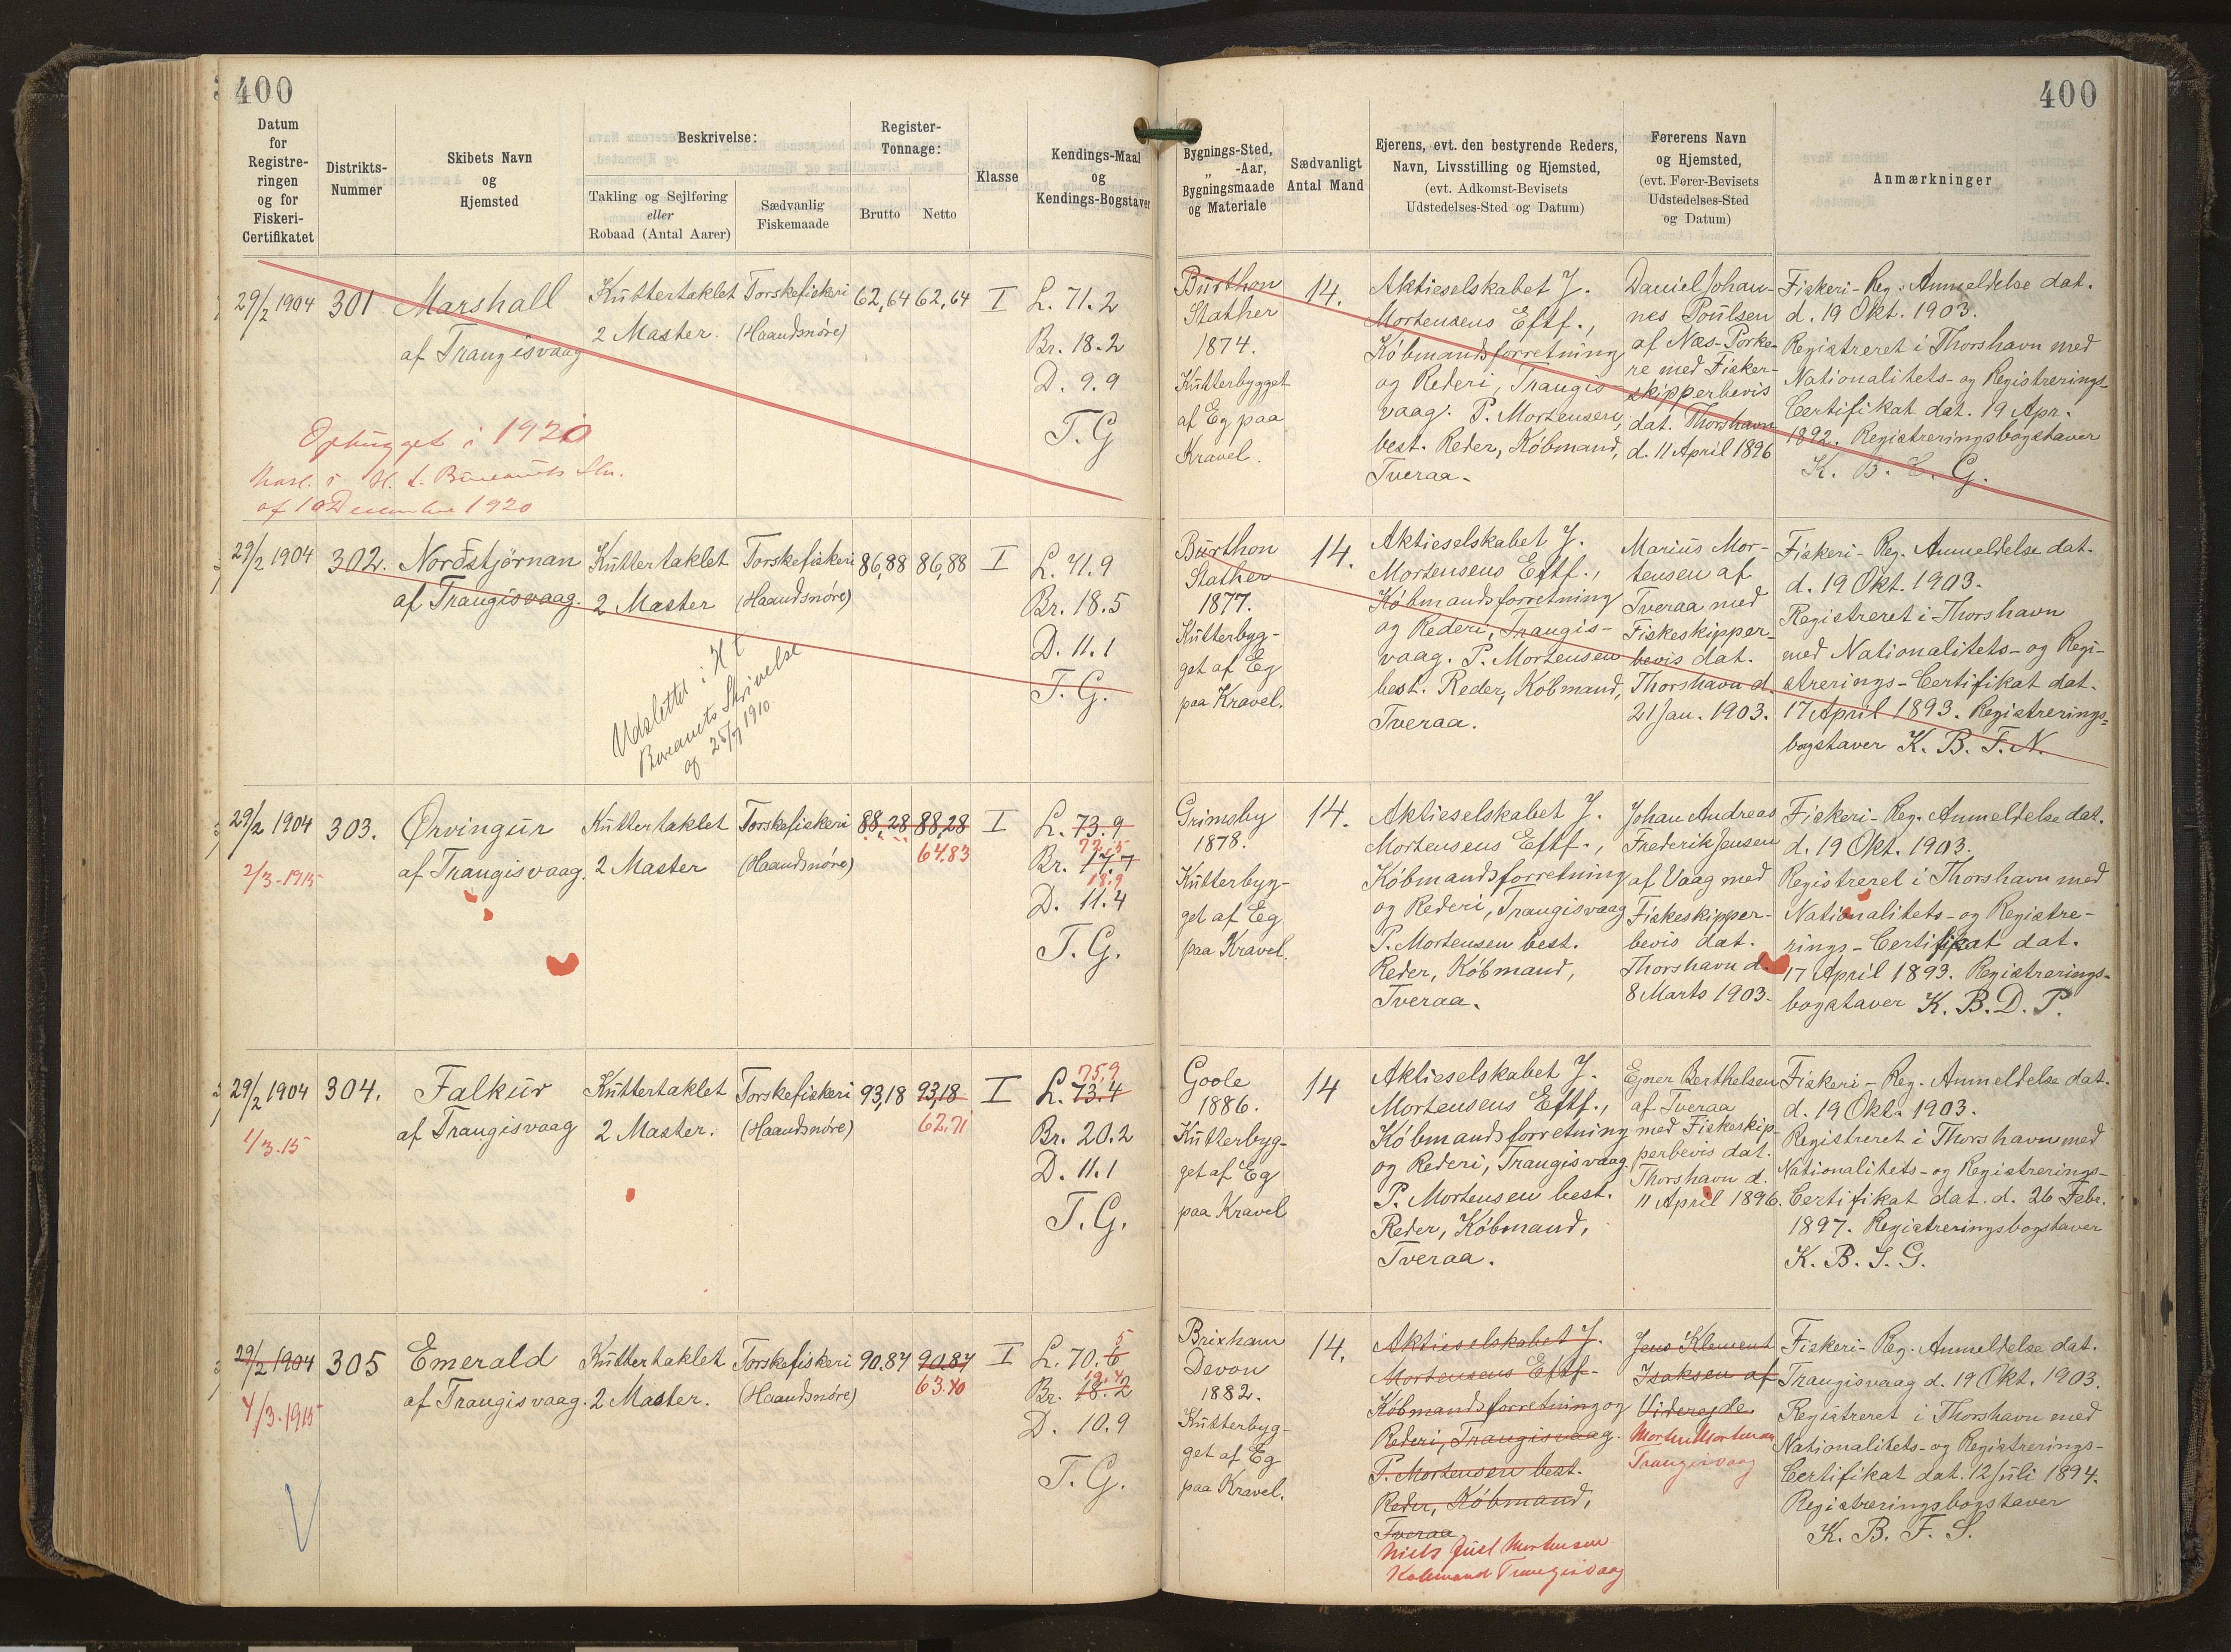 400
400
Datum
for
Registre-
ringen
og for
Fiskeri-
Certifikatet
Distrikts-
Nummer
Skibets Navn
og
Hjemsted
Beskrivelse:
Takling og Sejlføring
eller
Robaad (Antal Aarer)
Sædvanlig
Fiskemaade
Register-
Tonnage:
Brutto
Netto
Klasse
Kendings-Maal
og
Kendings-Bogstaver
Bygnings-Sted,
„ -Aar,
Bygningsmaade
og Materiale
Sædvanligt
Antal Mand
Ejerens, evt. den bestyrende Reders,
Navn, Livsstilling og Hjemsted,
(evt. Adkomst-Bevisets
Udstedelses-Sted og Datum)
Førerens Navn
og Hjemsted,
(evt. Fører-Bevisets
Udstedelses-Sted
og Datum)
Anmærkninger
29/2 1904
301
Marshall
af Trangisvaag
Kuttertaklet
2 Master.
Torskefiskeri
(Haandsnøre)
62,64
62,64
I
L. 71.2
Br. 18.2
D. 9.9
T. G
Ophugget i 1920
af 10 December 1920
Burthon
Stather
1874.
Kutterbygget
af Eg paa
Kravel.
14.
Aktieselskabet J.
Mortensens Eftf.,
Købmandsforretning
og Rederi, Trangis-
vaag. P. Mortensen,
best. Reder, Købmand,
Tveraa.
Daniel Johan-
nes Poulsen
af Næs-Porke-
re med Fisker-
skipperbevis
dat. Thorshavn
d. 11 April 1896
Fiskeri-Reg. Anmeldelse dat.
d. 19 Okt. 1903.
Registreret i Thorshavn med
Nationalitets- og Registrerings-
Certifikat dat. 19 Apr.
1892. Registreringsbogstaver
K. B. C. G.
29/2 1904
302.
Nordstjørnan
af Trangisvaag.
Kuttertaklet
2 Master
Torskefiskeri
(Haandsnøre)
86,88
86,88
I
L. 71.9
Br. 18.5
D. 11.1
T. G.
Udslettet i H t
Bureauets Skrivelse
af 25/7 1910.
Burthon
Stather
1877.
Kutterbyg-
get af Eg
paa Kravel.
14.
Aktieselskabet J.
Mortensens Eftf.,
Købmandsforretning
og Rederi, Trangis-
vaag. P. Mortensen
best. Reder, Købmand,
Tveraa.
Marius Mor-
tensen af
Tveraa med
Fiskeskipper-
bevis dat.
Thorshavn d.
21 Jan. 1903.
Fiskeri-Reg. Anmeldelse dat.
d. 19 Okt. 1903.
Registreret i Thorshavn
med Nationalitets- og Regi-
strerings-Certifikat dat.
17 April 1893. Registrerings-
bogstaver K. B. F. N.
29/2 1904
2/3-1915
303.
Ørvingur
af Trangisvaag.
Kuttertaklet
2 Master
Torskefiskeri
(Haandsnøre)
88,28
88,28
64.83
I
L. 73.9
72.5
Br. 17.7
18.9
D. 11.4
T. G.
Grimsby
1878.
Kutterbyg-
get af Eg
paa Kravel.
14.
Aktieselskabet J.
Mortensens Eftf.,
Købmandsforretning
og Rederi, Trangisvaag
P. Mortensen best.
Reder, Købmand,
Tveraa.
Johan Andreas
Frederik Jensen
af Vaag med
Fiskeskipper-
bevis dat.
Thorshavn d.
8 Marts 1903.
Fiskeri-Reg. Anmeldelse dat.
d. 19 Okt. 1903.
Registreret i Thorshavn med
Nationalitets- og Registre-
rings-Certifikat dat.
17 April 1893. Registrerings-
bogstaver K. B. D. P.
29/2 1904
1/3.15
304.
Falkur
af Trangisvaag
Kuttertaklet
2 Master.
Torskefiskeri
(Haandsnøre)
93,18
93,18
62.71
I
75,9
L. 73.4
Br. 20.2
D. 11.1
T. G.
Goole
1886.
Kutterbyg-
get af Eg
paa Kravel
14
Aktieselskabet J.
Mortensens Eftf.,
Købmandsforretning
og Rederi, Trangisvaag.
P. Mortensen best.
Reder, Købmand,
Tveraa.
Ejner Berthelsen
af Tveraa
med Fiskeskip-
perbevis dat.
Thorshavn d.
11 April 1896.
Fiskeri-Reg. Anmeldelse dat.
d. 19 Okt. 1903.
Registreret i Thorshavn med
Nationalitets- og Registrerings-
Certifikat dat. d. 26 Febr.
1897. Registreringsbogstaver
K. B. J. G.
29/2 1904
4/3-1915
305
Emerald
af Trangisvaag.
Kuttertaklet
2 Master.
Torskefiskeri
(Haandsnøre)
90.87
90.87
63.40
I
5
L. 70.6
19.4
Br. 18.2
D. 10.9
T. G.
Brixham
Devon
1882.
Kutterbyg-
get af Eg
paa Kravel.
14.
Aktieselskabet J.
Mortensens Eftf.
Købmandsforretning og
Rederi, Trangisvaag.
P. Mortensen best.
Reder, Købmand,
Tveraa
Niels Juel Mortensen
Købmand Trangisvaag
Jens Klement
Isaksen af
Viderejde
Morten Mortensen
Trangisvaag
Fiskeri-Reg. Anmeldelse dat.
Trangisvaag d. 19 Okt. 1903.
Registreret i Thorshavn med
Nationalitets- og Registrerings-
Certifikat dat. 12 Juli 1894.
Registreringsbogstaver
K. B. F. S.